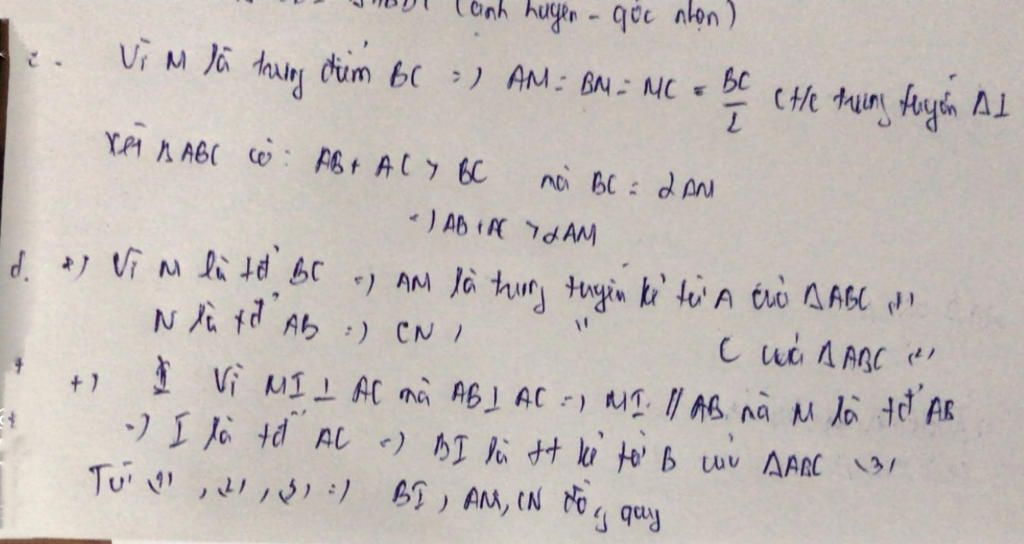 (cạnh huyền - góc nhọn)
c. Vì M là trung điểm BC => AM = BM = MC = BC/2 (t/c trung tuyến Δ⊥
xét ΔABC có: AB + AC > BC mà BC = 2AM
=) AB + AC > 2AM
d. +) Vì M là tđ BC =) AM là trung tuyến kẻ từ A của ΔABC (1)
N là tđ AB =) CN, " C của ΔABC (2)
+) Vì MI ⊥ AC mà AB ⊥ AC =) MI // AB mà M là tđ AB
=) I là tđ AC =) BI là tt kẻ từ B của ΔABC (3)
Từ (1), (2), (3) =) BI, AM, CN đồng quy